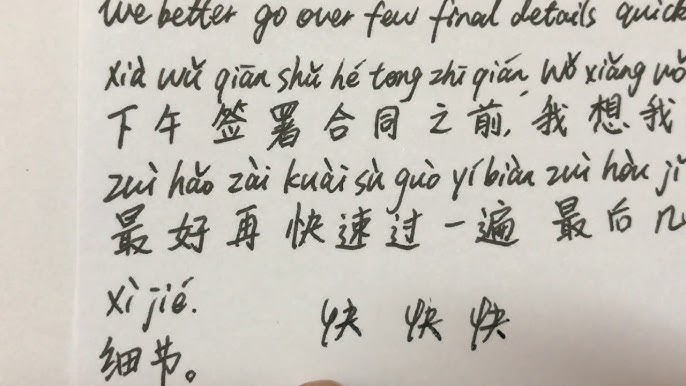 We better go over few final details quick
xià wǔ qiān shǔ hé tong zhī qián, wǒ xiǎng wǒ
下午签署合同之前,我想我
zuì hǎo zài kuài sù guò yí biàn zuì hòu jǐ
最好再快速过一遍最后几
xì jié.
细节。 快 快 快